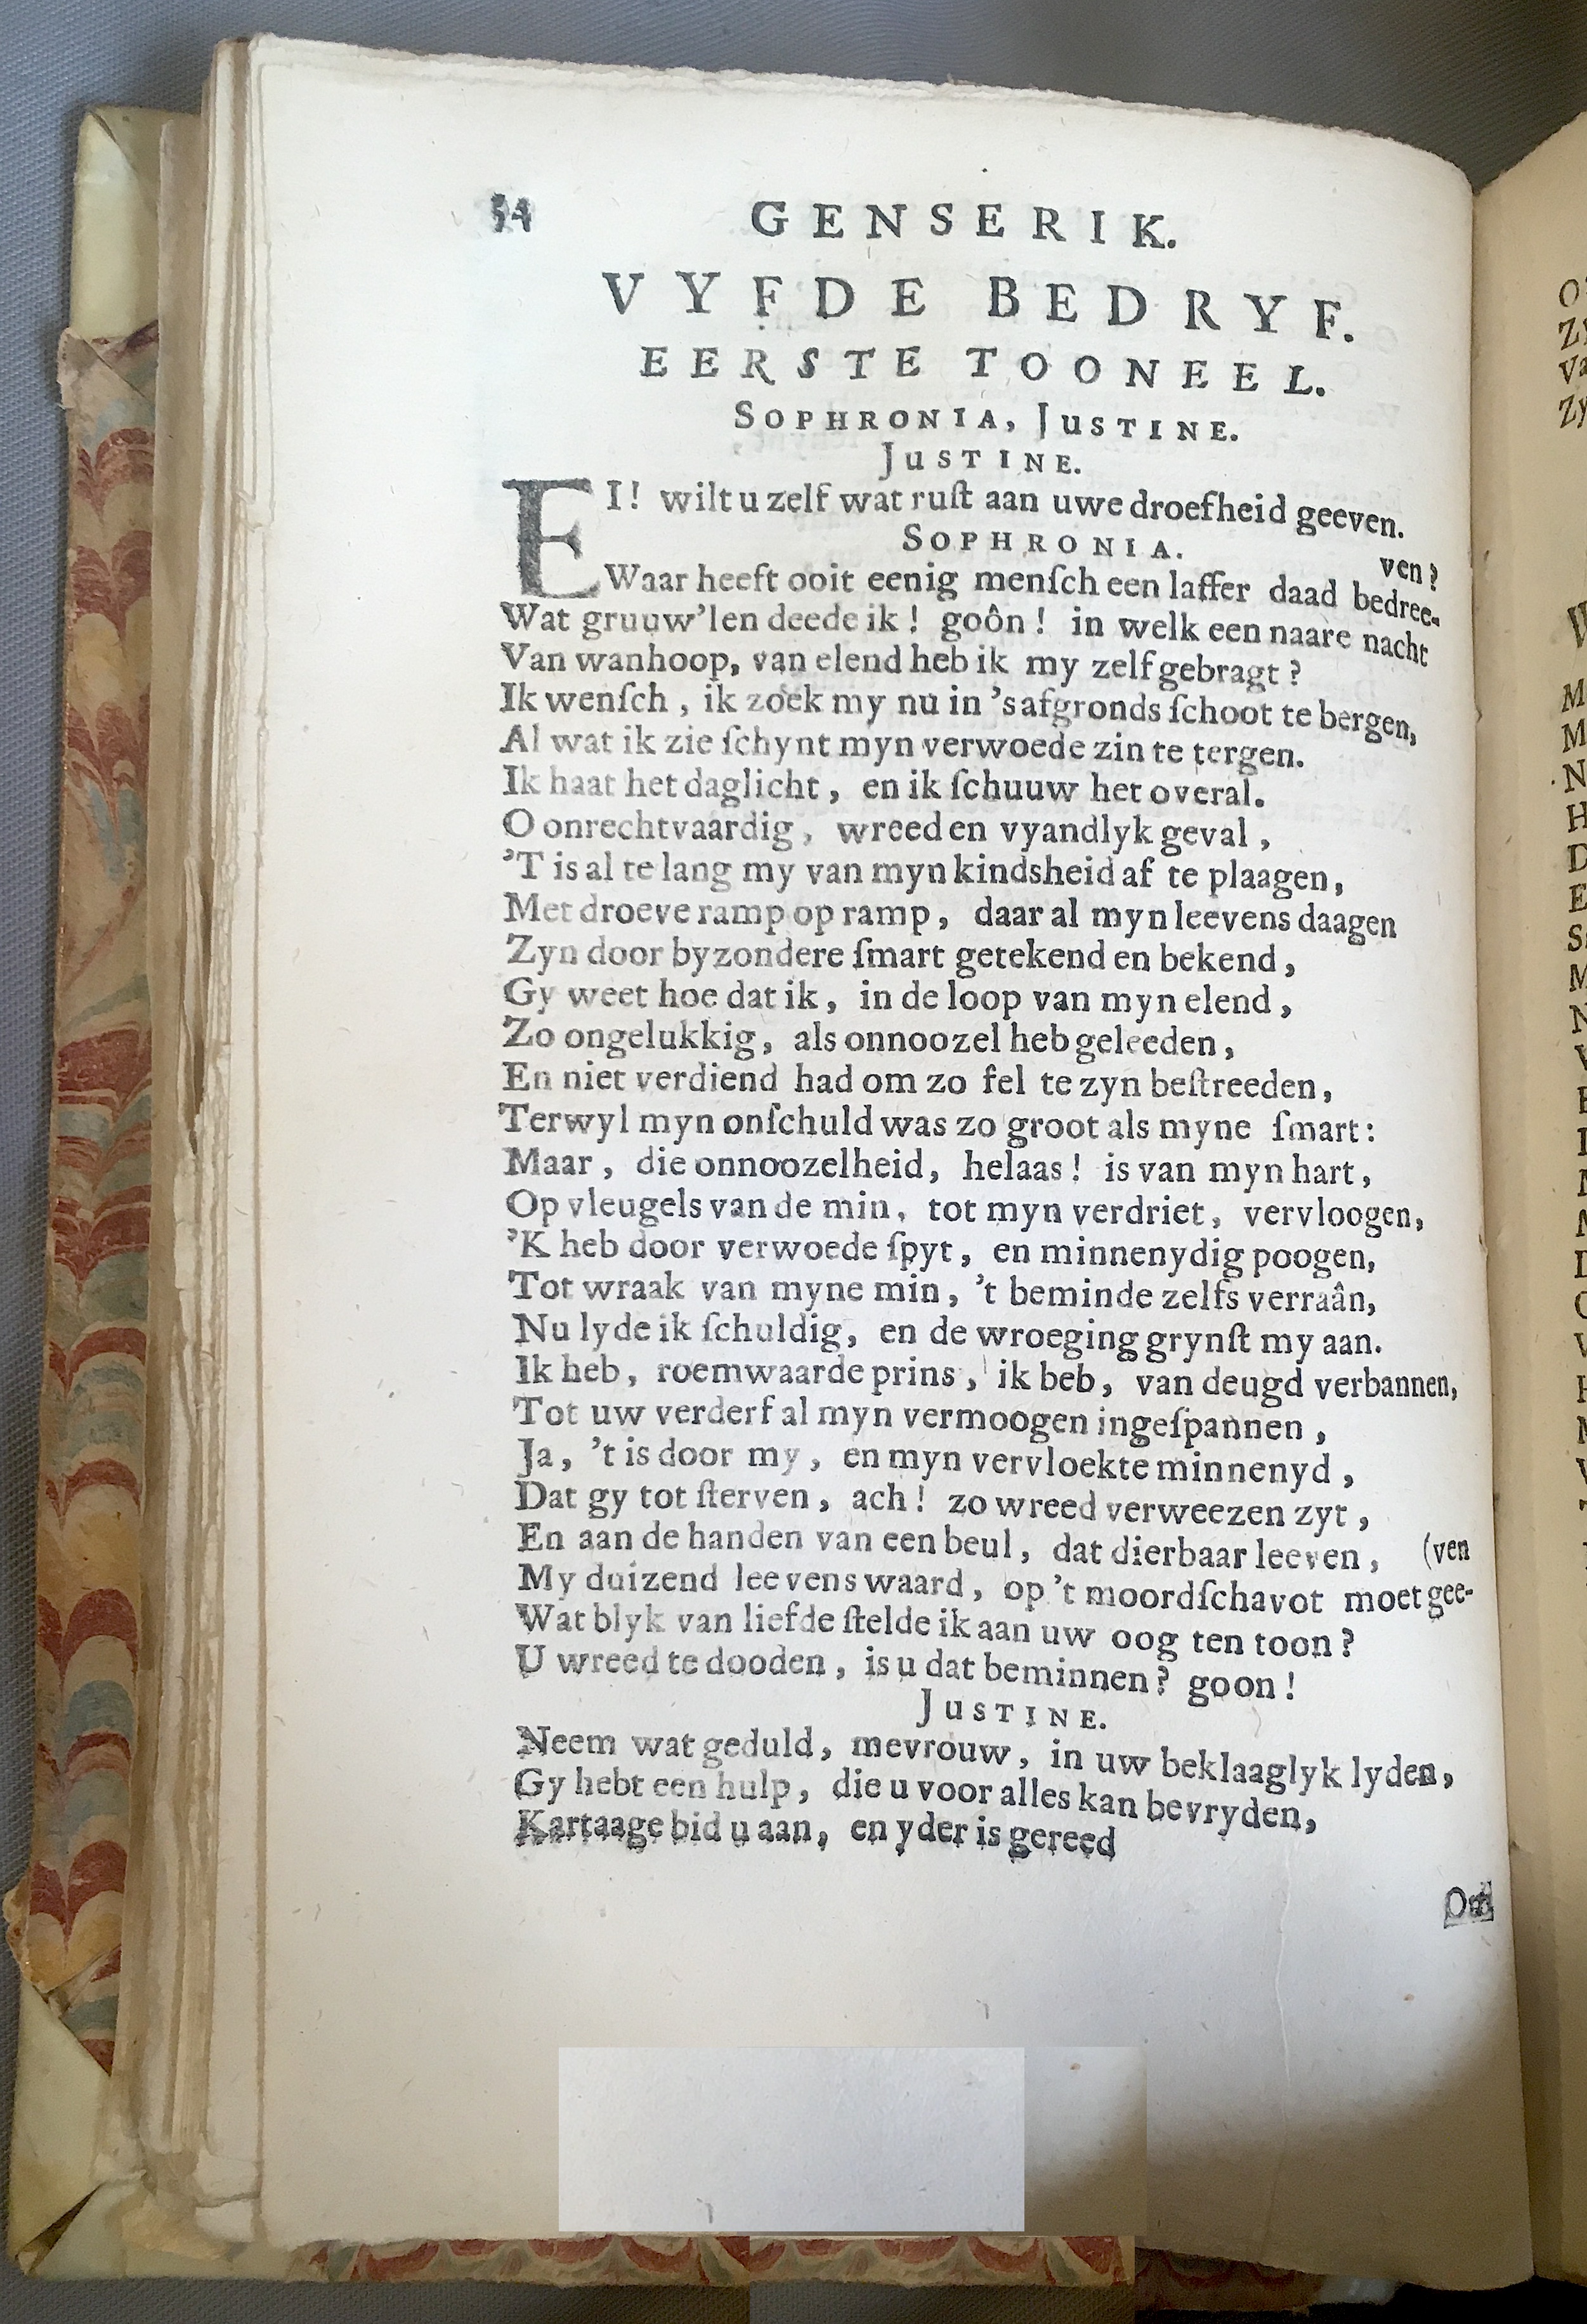 54 GENSERIK.
VYFDE BEDRYF.
EERSTE TOONEEL.
SOPHRONIA, JUSTINE.
JUSTINE.
EI! wilt u zelf wat ruſt aan uwe droefheid geeven.
SOPHRONIA.
ven?
Waar heeft ooit eenig menſch een laffer daad bedree-
Wat gruuw'len deede ik! goôn! in welk een naare nacht
Van wanhoop, van elend heb ik my zelf gebragt?
Ik wenſch, ik zoek my nu in 's afgronds ſchoot te bergen,
Al wat ik zie ſchynt myn verwoede zin te tergen.
Ik haat het daglicht, en ik ſchuuw het overal.
O onrechtvaardig, wreed en vyandlyk geval,
'T is al te lang my van myn kindsheid af te plaagen,
Met droeve ramp op ramp, daar al myn leevens daagen
Zyn door byzondere ſmart getekend en bekend,
Gy weet hoe dat ik, in de loop van myn elend,
Zo ongelukkig, als onnoozel heb geleeden,
En niet verdiend had om zo fel te zyn beſtreeden,
Terwyl myn onſchuld was zo groot als myne ſmart:
Maar, die onnoozelheid, helaas! is van myn hart,
Op vleugels van de min, tot myn verdriet, vervloogen,
'K heb door verwoede ſpyt, en minnenydig poogen,
Tot wraak van myne min, 't beminde zelfs verraân,
Nu lyde ik ſchuldig, en de wroeging grynſt my aan.
Ik heb, roemwaarde prins, ik beb, van deugd verbannen,
Tot uw verderf al myn vermoogen ingeſpannen,
Ja, 't is door my, en myn vervloekte minnenyd,
Dat gy tot ſterven, ach! zo wreed verweezen zyt,
En aan de handen van een beul, dat dierbaar leeven, (ven
My duizend leevens waard, op 't moordſchavot moet gee-
Wat blyk van liefde ſtelde ik aan uw oog ten toon?
U wreed te dooden, is u dat beminnen? goon!
JUSTINE.
Neem wat geduld, mevrouw, in uw beklaaglyk lyden,
Gy hebt een hulp, die u voor alles kan bevryden,
Kartaage bid u aan, en yder is gereed
Om